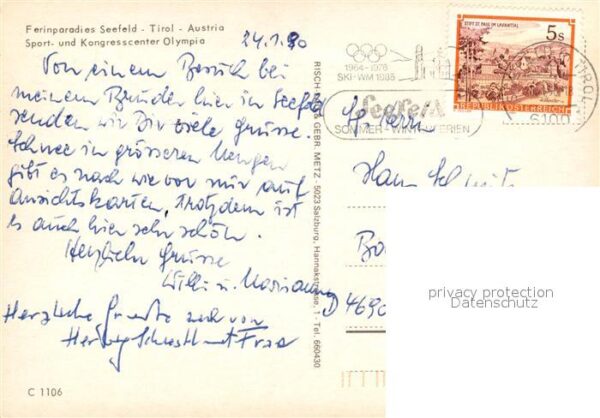 Ferinparadies Seefeld - Tirol - Austria
Sport- und Kongresscenter Olympia
24.1.90
Von einem Besuch bei
meinem Bruder hier in Seefeld
senden wir Dir viele Grüsse.
Schnee in grösseren Mengen
gibt es nach wie vor nur auf
Ansichtskarten, trotzdem ist
es auch hier sehr schön.
Herzliche Grüsse
Willi u. Marianne
Herzliche Grüsse auch von
Herbg mit Frau
C 1106
RISCH-LAU & GEBR. METZ - 5023 Salzburg, Hannakstrasse, 1 - Tel. 660430
1964-1976
SKI-WM 1985
Seefeld
SOMMER-WINTER-FERIEN
STIFT ST. PAUL IM LAVANTTAL
5s
REPUBLIK ÖSTERREICH
TIROL
6100
Herrn
Hans
D 4690
privacy protection
Datenschutz